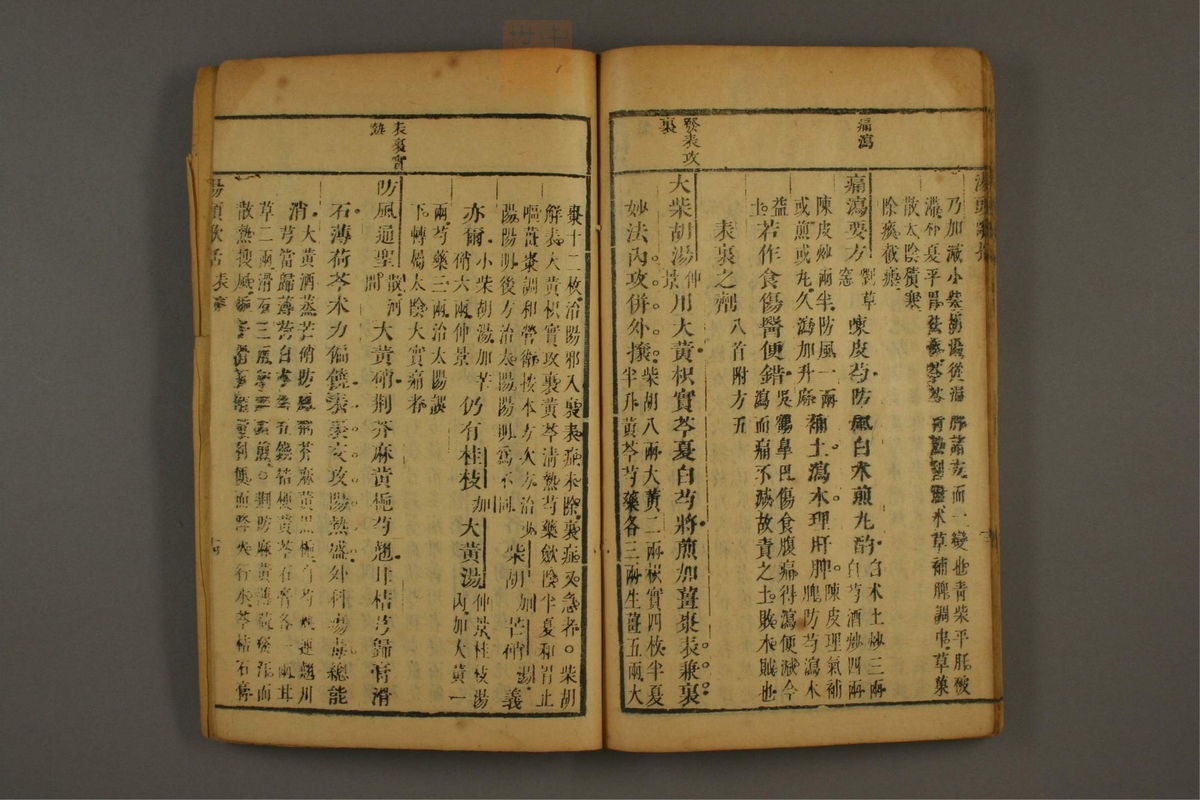 痛瀉
發表攻
裏
乃加減小柴胡湯從溫脾諸方而一變也青柴平肝破
滯朴夏平胃祛痰芩苓清熱利濕朮草補脾調中草菓
散太陰積寒
除痰截瘧
痛瀉要方劉草窓陳皮芍防風白朮煎丸酌白朮土炒三兩白芍酒炒四兩
陳皮炒兩半防風一兩
或煎或丸久瀉加升麻補土瀉木理肝脾陳皮理氣補脾防芍瀉木
益土若作食傷醫便錯吳鶴皐曰傷食腹痛得瀉便減今瀉而痛不減故責之土敗木賊也
表裏之劑八首附方五
大柴胡湯仲景用大黃枳實芩夏白芍將煎加薑棗表兼裏
妙法內攻併外攘柴胡八兩大黃二兩枳實四枚半夏半升黃芩芍藥各三兩生薑五兩大
表裏實
熱
棗十二枚治陽邪入裏表症未除裏症又急者柴胡
解表大黃枳實攻裏黃芩清熱芍藥斂陰半夏和胃止
嘔薑棗調和營衛按本方次方治少
陽陽明後方治太陽陽明爲不同柴胡加芒硝湯義
亦爾小柴胡湯加芒硝六兩仲景仍有桂枝加大黃湯仲景桂枝湯內加大黃一
兩芍藥三兩治太陽誤
下轉屬太陰大實痛者
防風通聖散河間大黃硝荊芥麻黃梔芍翹甘桔芎歸膏滑
石薄荷芩朮力偏饒表裏交攻陽熱盛外科瘍毒總能
消大黃酒蒸芒硝防風荊芥麻黃黑梔白芍連翹川
芎當歸薄荷白朮各五錢桔梗黃芩石膏各一兩甘
草二兩滑石三兩加薑葱煎荊防麻黃薄荷發汗而
散熱搜風梔子滑石硝黃利便而降火行水芩桔石膏
湯頭歌括 表裏